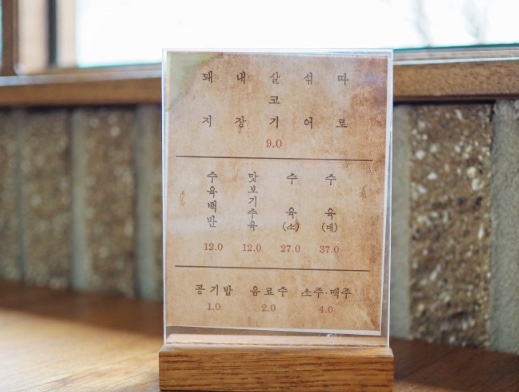 돼지
내장
살코기
섞어
따로
9.0
수육백반
12.0
맛보기수육
12.0
수육(소)
27.0
수육(대)
37.0
공기밥
1.0
음료수
2.0
소주·맥주
4.0